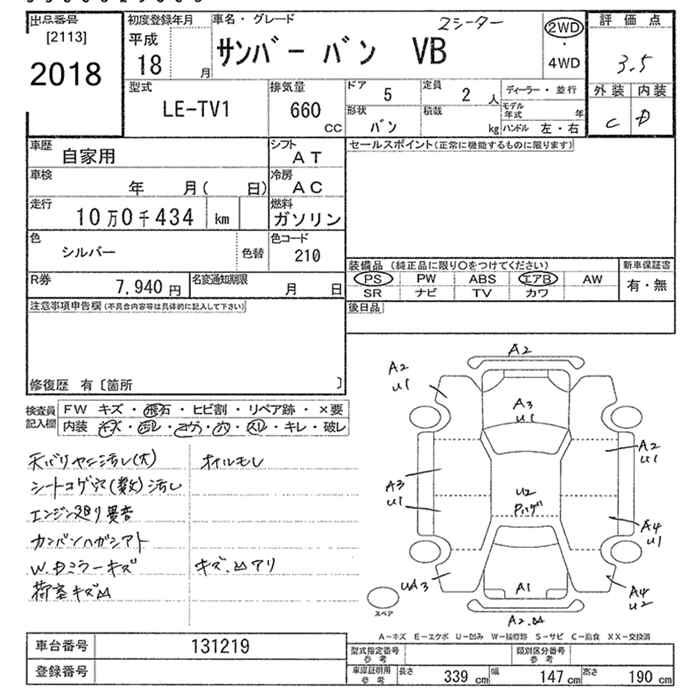 出品番号
[2113]
2018
初度登録年月
平成
18 月
車名・グレード
2シーター
サンバー バン VB
2WD
・
4WD
評価点
3.5
外装 内装
C D
型式
LE-TV1
排気量
660 CC
ドア 5
定員 2 人
形状 バン
積載 kg
ディーラー・並行
モデル年式 年
ハンドル 左・右
車歴 自家用
シフト AT
車検 年 月( 日)
冷房 AC
走行 10万0千434 km
燃料 ガソリン
色 シルバー 色替
色コード 210
R券 7,940 円
名変通知期限 月 日
セールスポイント(正常に機能するものに限ります)
装備品 (純正品に限り○をつけてください)
新車保証書
有・無
PS PW ABS エアB AW
SR ナビ TV カワ
後日品
注意事項申告欄(不具合内容等は具体的に記入して下さい)
修復歴 有〔箇所 〕
検査員記入欄
FW キズ・飛石・ヒビ割・リペア跡・×要
内装 キズ・汚レ・コゲ・穴・スレ・キレ・破レ
天バリヤニ汚レ(大)
オイルモレ
シートコゲ穴(数)汚レ
エンジン廻り異音
カンバンハガシアト
W,Dミラーキズ
キズ、凹アリ
荷室キズ凹
A2
A2
U1
A3
U1
A2
U1
A3
U1
U2
A4
U1
UA3
A1
A4
U2
スペア
A-キズ E-エクボ U-凹み W-補修跡 S-サビ C-腐食 XX-交換済
車台番号 131219
登録番号
型式指定番号 参考
類別区分番号 参考
車庫証明用 参考
長さ 339 cm
幅 147 cm
高さ 190 cm